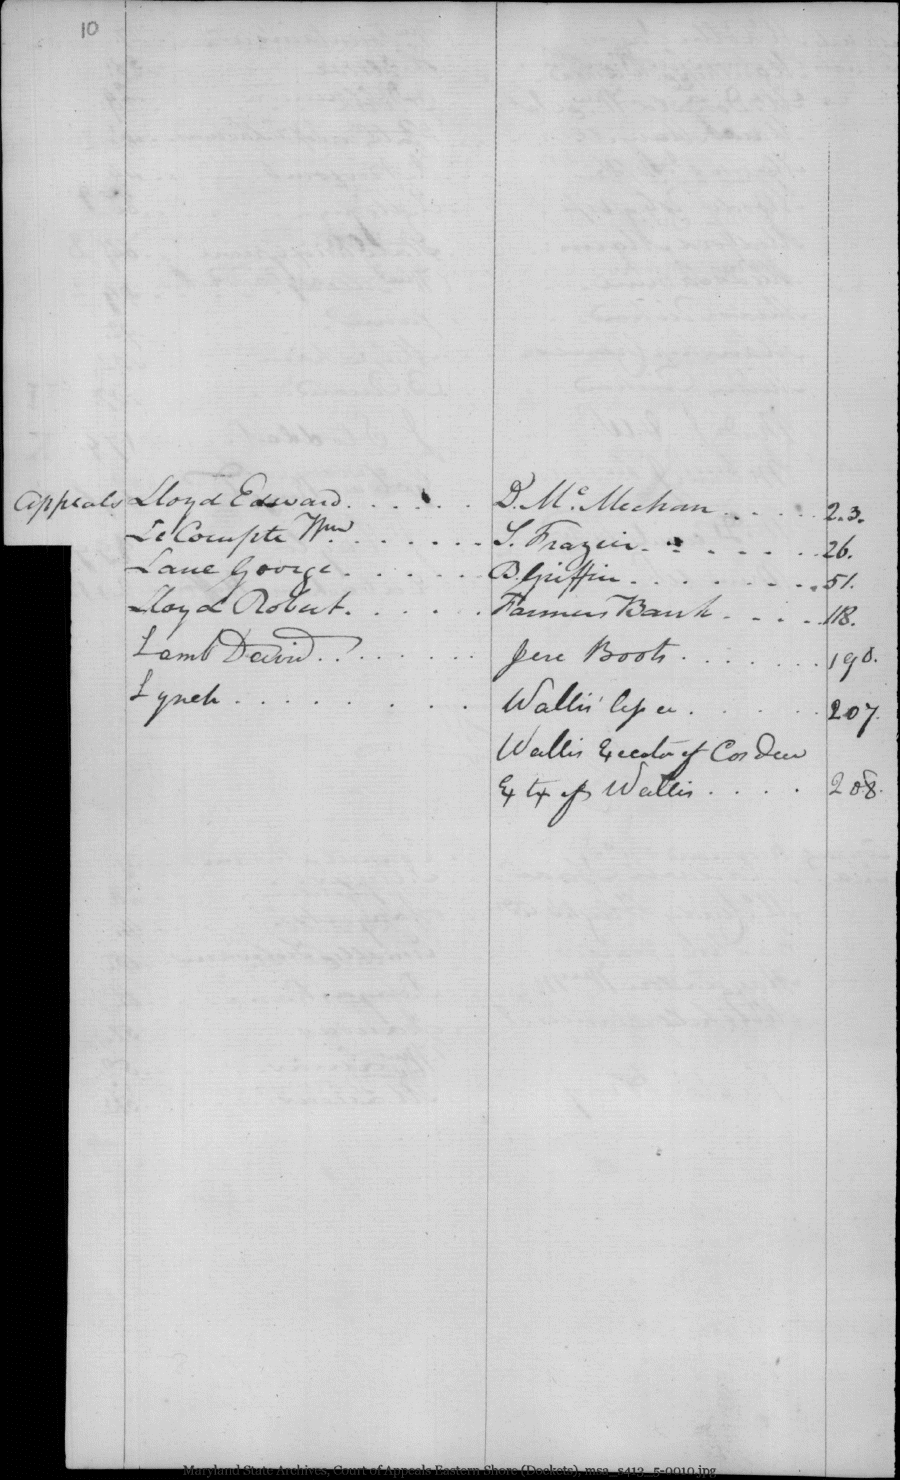 10
Appeals Lloyd Edward . . . . . . D. Mc. Mechan . . . . . 23.
Le Compte Wm . . . . . . S. Frazier . . . . . . 26.
Lane George . . . . . B. Griffin . . . . . . . 51.
Lloyd Robert . . . . . Farmers Bank . . . . 118.
Lamb David . . . . . . Jere Boots . . . . . . . 190.
Lynch . . . . . . . Wallis' . . . . . 207.
Wallis of
of Wallis . . . . 208.
Maryland State Archives, Court of Appeals Eastern Shore (Dockets), msa_s413_5-0010.jpg